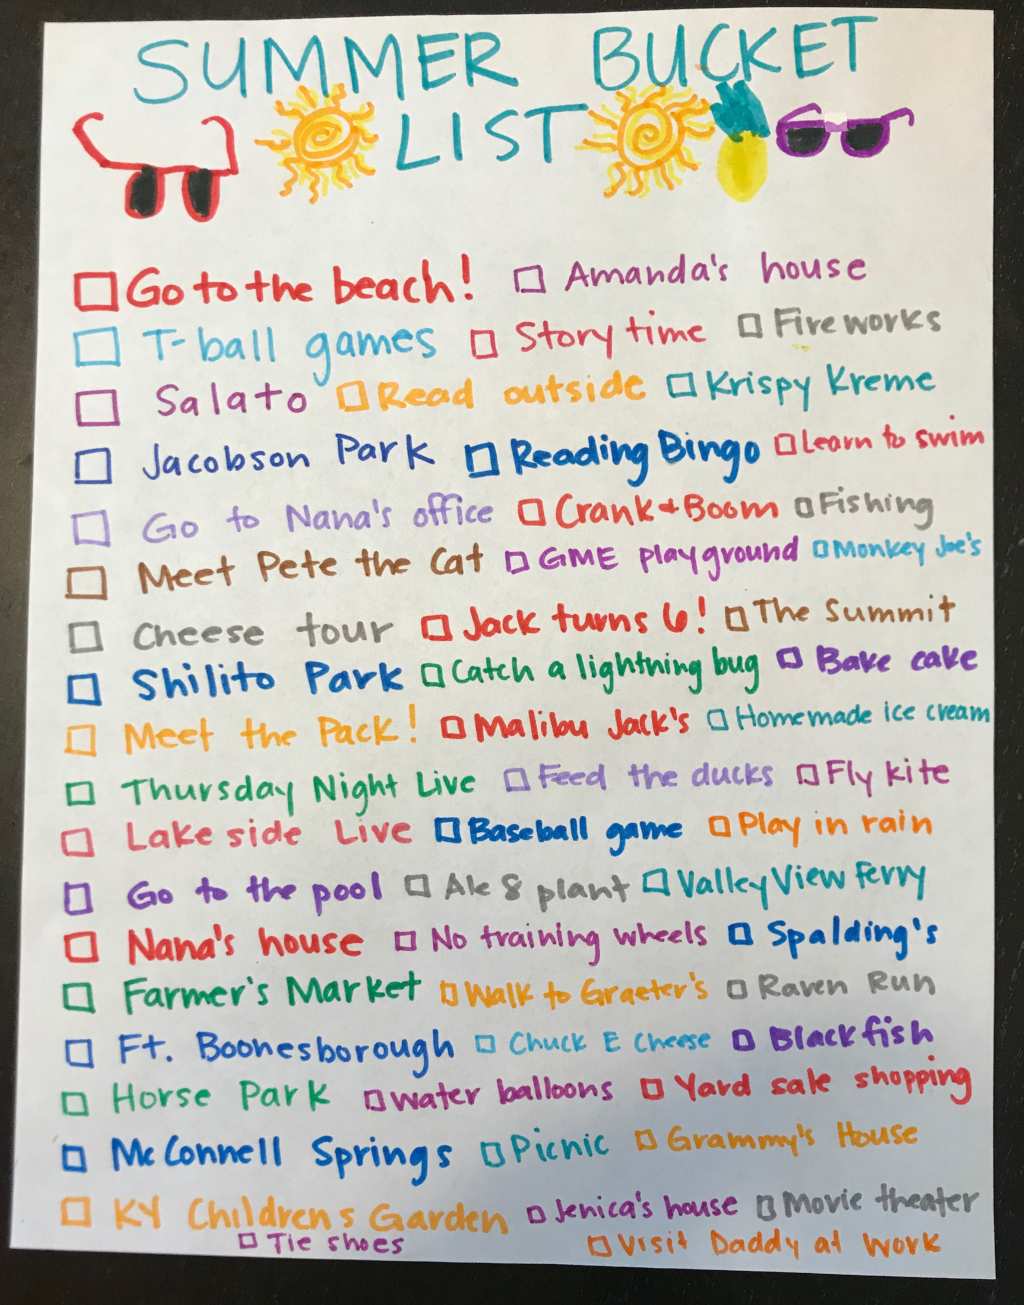 SUMMER BUCKET
LIST
Go to the beach! Amanda's house
T-ball games Story time Fireworks
Salato Read outside Krispy Kreme
Jacobson Park Reading Bingo Learn to swim
Go to Nana's office Crank + Boom Fishing
Meet Pete the Cat GME playground Monkey Joe's
Cheese tour Jack turns 6! The Summit
Shilito Park Catch a lightning bug Bake cake
Meet the Pack! Malibu Jack's Homemade ice cream
Thursday Night Live Feed the ducks Fly kite
Lake side Live Baseball game Play in rain
Go to the pool Ale 8 plant Valley View Ferry
Nana's house No training wheels Spalding's
Farmer's Market Walk to Graeter's Raven Run
Ft. Boonesborough Chuck E Cheese Blackfish
Horse Park water balloons Yard sale shopping
McConnell Springs Picnic Grammy's House
KY Childrens Garden Jenica's house Movie theater
Tie shoes Visit Daddy at work